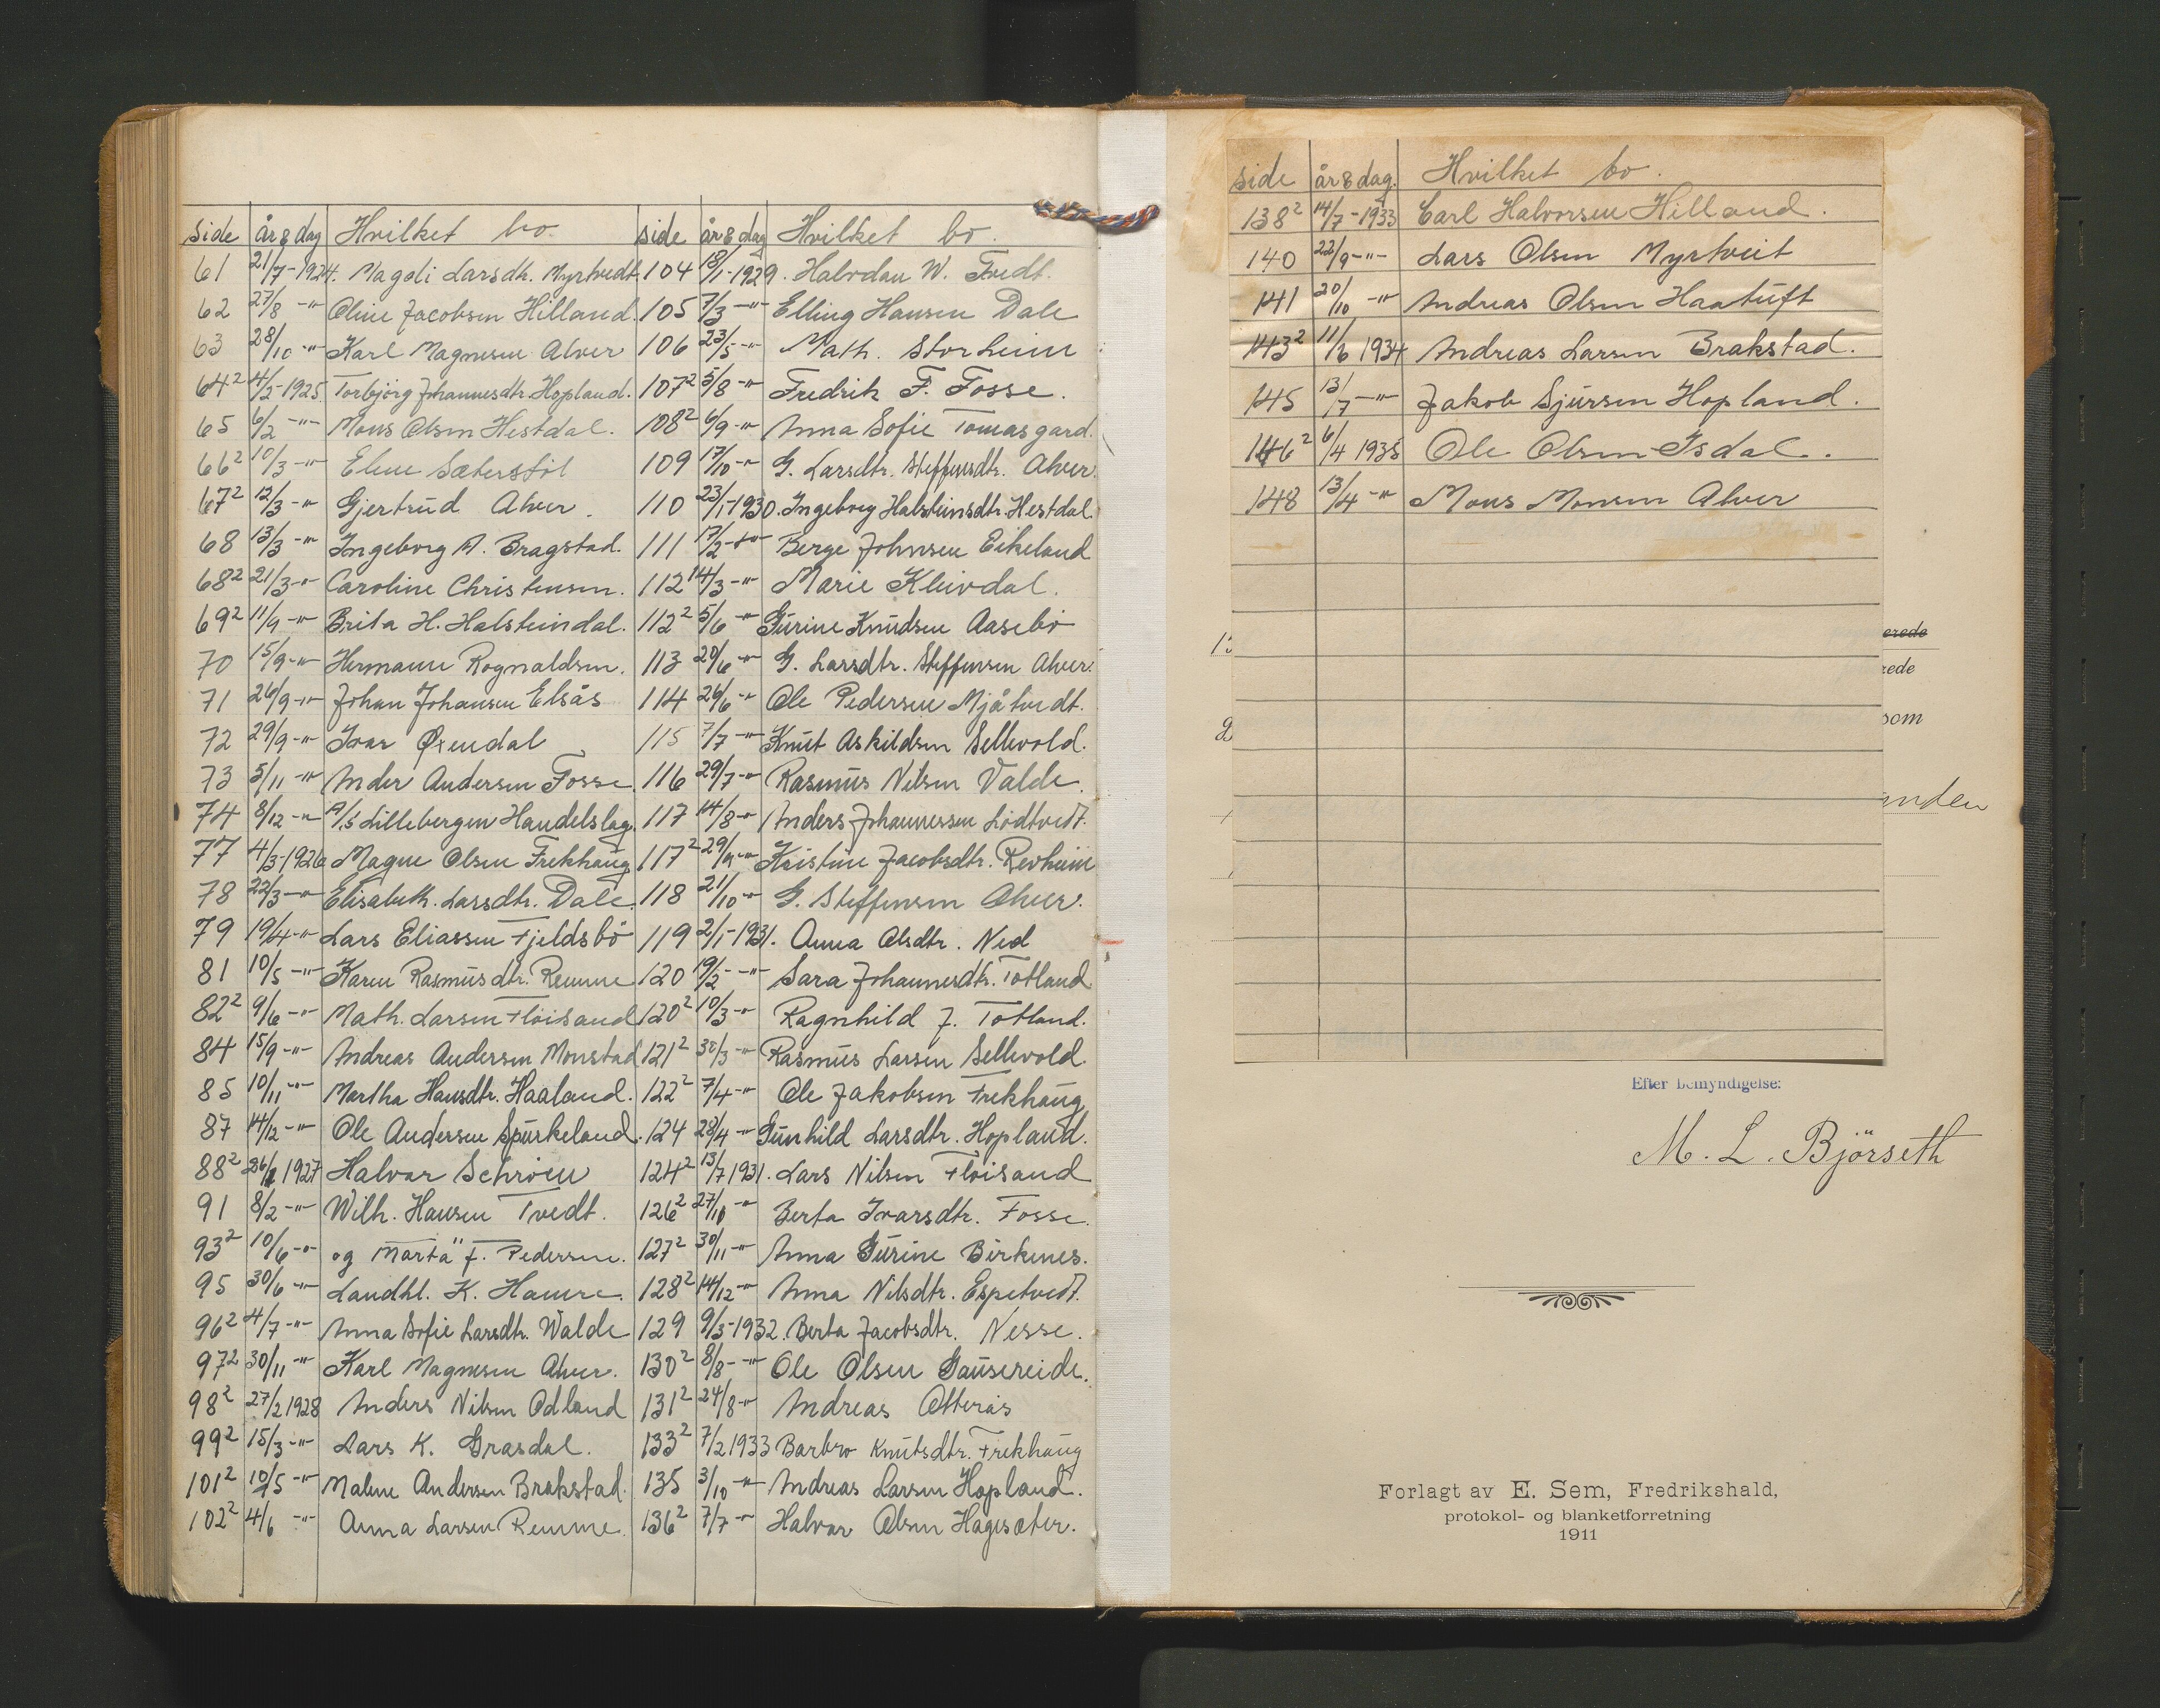 side år & dag Hvilket bo.
61 21/7-1924. Magdli Larsdtr. Myrtvedt.
62 27/8 -"- Oline Jacobsen Hilland.
63 28/10 -"- Karl Magnesen Alver
64² 4/2-1925. Torbjörg Johannesdtr. Hopland.
65 6/2 -"- Mons Olsen Hestdal.
66² 10/3 -"- Eline Sæterstöl
67² 12/3 -"- Gjertrud Alver.
68 13/3 -"- Ingeborg A. Bragstad.
68² 21/3 -"- Caroline Christensen.
69² 11/9 -"- Brita H. Halsteindal.
70 15/9 -"- Hermann Rognaldsen.
71 26/9 -"- Johan Johansen Elsås
72 29/9 -"- Ivar Øxendal
73 5/11 -"- Ander Andersen Fosse
74 8/12 -"- A/S Lillebergen Handelslag.
77 4/3-1926 Magne Olsen Frekhaug
78 22/3 -"- Elisabeth. Larsdtr. Dale.
79 19/4 -"- Lars Eliassen Fjeldsbö
81 10/5 -"- Karen Rasmusdtr. Remme
82² 9/6 -"- Math. Larsen Flöisand
84 15/9 -"- Andreas Andersen Monstad
85 10/11 -"- Martha Hansdtr. Haaland.
87 14/12 -"- Ole Andersen Spurkeland.
88² 26/1 1927 Halvar Schröen
91 8/2 -"- Wilh. Hansen Tvedt.
93² 10/6 -"- og Marta " J. Pedersen.
95 30/6 -"- Landhl. K. Hamre.
96² 4/7 -"- Anna Sofie Larsdtr. Walde
97² 30/11 -"- Karl Magnesen Alver.
98² 27/2 1928 Anders Nilsen Odland
99² 15/3 -"- Lars K. Grasdal.
101² 10/5 -"- Malene Andersen Brakstad.
102² 4/6 -"- Anna Larsen Remme.
side år & dag Hvilket bo.
104 18/1-1929. Halvdan W. Tvedt.
105 7/3 -"- Elling Hansen Dale
106 23/5 -"- Math. Storheim
107² 5/8 -"- Fredrik F. Fosse.
108² 6/9 -"- Anna Sofie Tomasgard.
109 17/10 -"- G. Larsdtr. Steffensdtr. Alver.
110 23/1-1930. Ingeborg Halsteinsdtr. Hestdal.
111 17/2 -"- Berge Johnsen Eikeland
112 14/3 -"- Marie Kleivdal.
112² 5/6 -"- Gurine Knudsen Aasebö
113 20/6 -"- G. Larsdtr. Steffensen Alver.
114 26/6 -"- Ole Pedersen Mjåtvedt.
115 7/7 -"- Knut Askildsen Sellevold.
116 29/7 -"- Rasmus Nilsen Valde.
117 14/8 -"- Anders Johannessen Lödtvedt.
117² 29/9 -"- Kristine Jacobsdtr. Revheim
118 21/10 -"- G. Steffensen Alver.
119 2/1-1931. Anna Olsdtr. Ned
120 19/2 -"- Sara Johannesdtr. Totland
120² 10/3 -"- Ragnhild J. Totland.
121² 30/3 -"- Rasmus Larsen Sellevold.
122² 7/4 -"- Ole Jakobsen Frekhaug
124 28/4 -"- Gunhild Larsdtr. Hopland.
124² 13/7 1931. Lars Nilsen Flöisand
126² 27/10 -"- Berta Ivarsdtr. Fosse.
127² 30/11 -"- Anna Gurine Birkenes.
128² 14/12 -"- Anna Nilsdtr. Espetvedt.
129 9/3-1932. Berta Jacobsdtr. Nesse.
130² 8/8 -"- Ole Olsen Gausereide.
131² 24/8 -"- Andreas Otterås
133² 7/2 1933 Barbro Knutsdtr. Frekhaug
135 3/10 -"- Andreas Larsen Hopland.
136² 7/7 -"- Halvar Olsen Hagesæter.
side år & dag. Hvilket bo.
138² 14/7-1933 Carl Halvorsen Hilland.
140 22/9 -"- Lars Olsen Myrtveit
141 20/10 -"- Andreas Olsen Haatuft
143² 11/6 1934 Andreas Larsen Brakstad.
145 13/7 -"- Jakob Sjursen Hopland.
146² 6/4 1935 Ole Olsen Isdal.
148 13/4 -"- Mons Monsen Alver
erede
rede
som
anden
Efter bemyndigelse:
M. L. Björseth
Forlagt av E. Sem, Fredrikshald,
protokol- og blanketforretning
1911